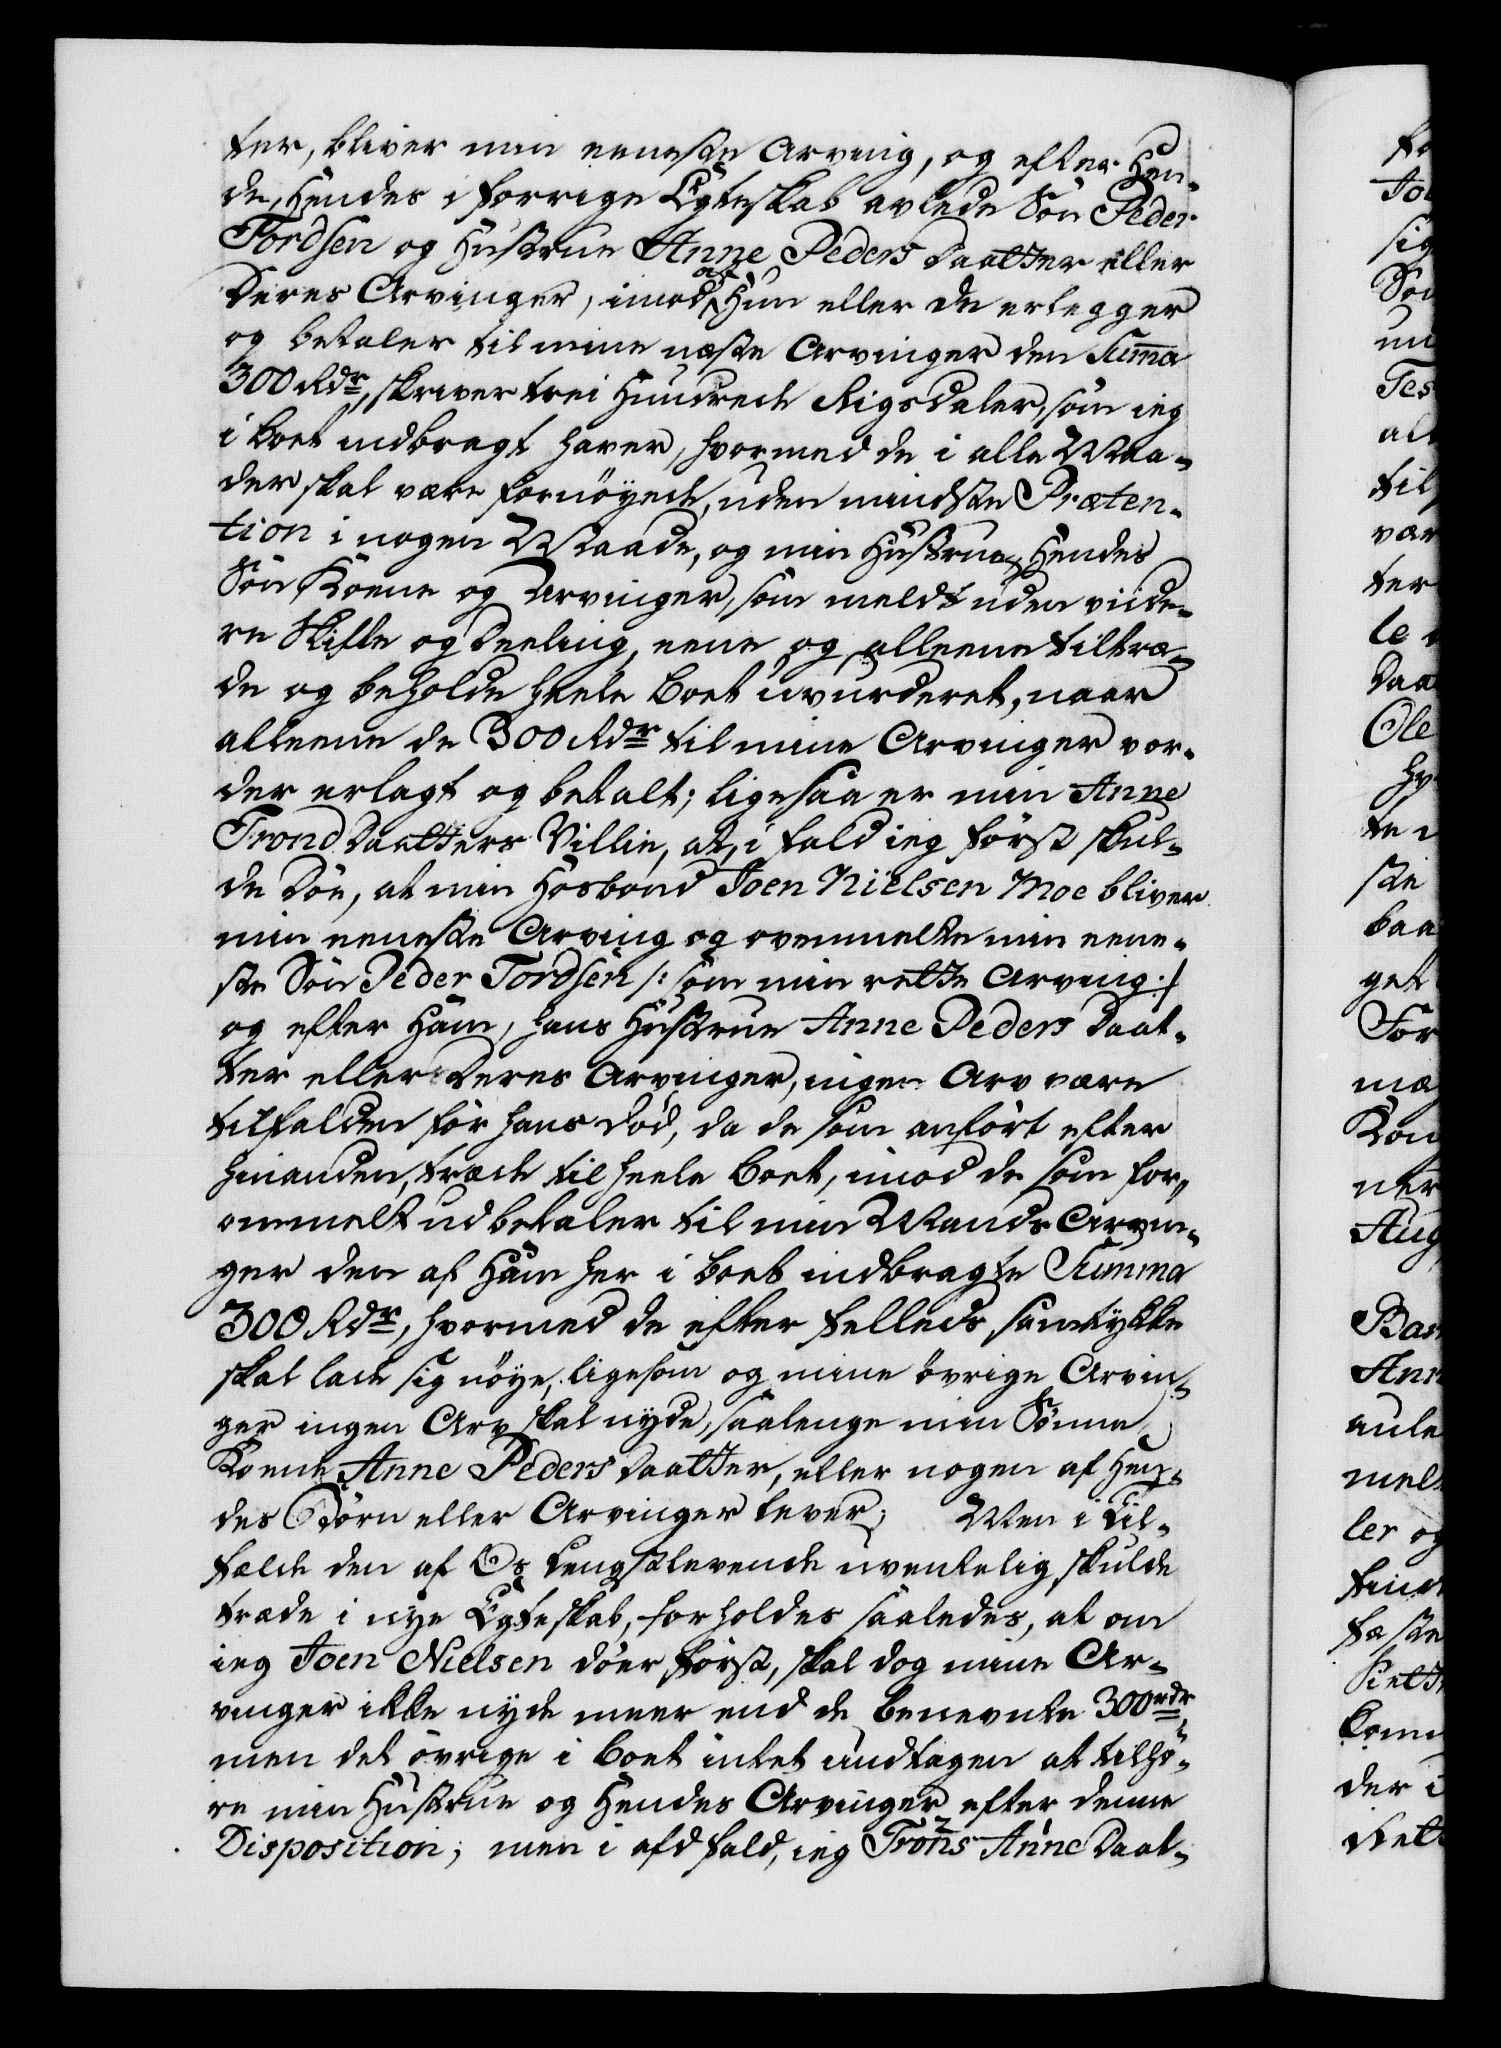 ter, bliver min eeneste Arving, og efter Hen-
de, Hendes i forrige Egteskab avlede Søn Peder
Tordsen og Hustrue Anne Peders Daatter eller
Deres Arvinger, imod at Hun eller de erlegger
og betaler til mine næste Arvinger den Suma
300 Rdr, skriver trei Hundrede Rigsdaler, som ieg
i Boet indbragt haver, hvormed de i alle Maa-
der skal være fornöyede, uden mindste Præten-
tion i nogen Maade, og min Hustrue, Hendes
Søn Kone og Arvinger, som meldt uden viide-
re Skifte og Deeling, eene og alleene tiltræ-
de og beholde heele Boet uvurderet, naar
alleene de 300 Rdr til mine Arvinger vor-
der erlagt og betalt; ligesaa er min Anne
Trond Daatters Villie, at, i fald ieg först skul-
de döe, at min Hosbond Joen Nielsen Moe bliver
min eeneste Arving og ovenmelte min eene-
ste Søn Peder Tordsen /: som min rette Arving :/
og efter Ham, hans Hustrue Anne Peders Daat-
ter eller Deres Arvinger, ingen Arv være
tilfalden för hans Död, da de som anfört efter
hinanden, træde til heele Boet, imod de som for-
ommelt udbetaler til min Mands Arvin-
ger den af Ham her i Boet indbragte Summa
300 Rdr, hvormed de efter felleds samtykke
skal lade sig nöye, ligesom og mine övrige Arvin-
ger ingen Arv skal nyde, saalenge min Sønne
Kone Anne Peders Daatter, eller nogen af Hen-
des Børn eller Arvinger lever; Men i Til-
fælde den af Os Lengstlevende uventelig skulde
træde i nye Egteskab, forholdes saaledes, at om
ieg Joen Nielsen döer först, skal dog mine Ar-
vinger ikke nyde meer end de benevnte 300 rdr,
men det övrige i Boet intet undtagen at tilhö-
re min Hustrue og Hendes Arvinger efter denne
Disposition; men i ald fald, ieg Trons Anne Daat-